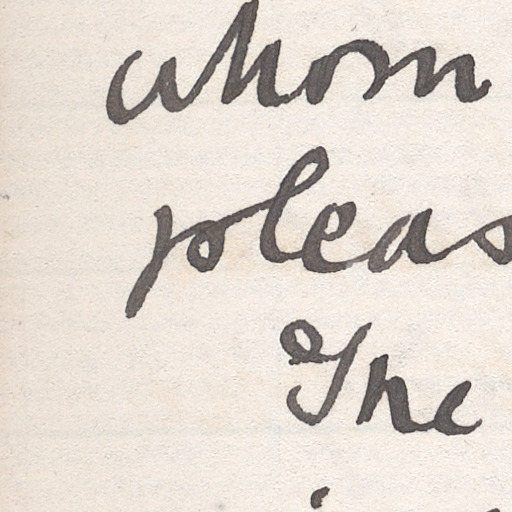 whom
pleas
The